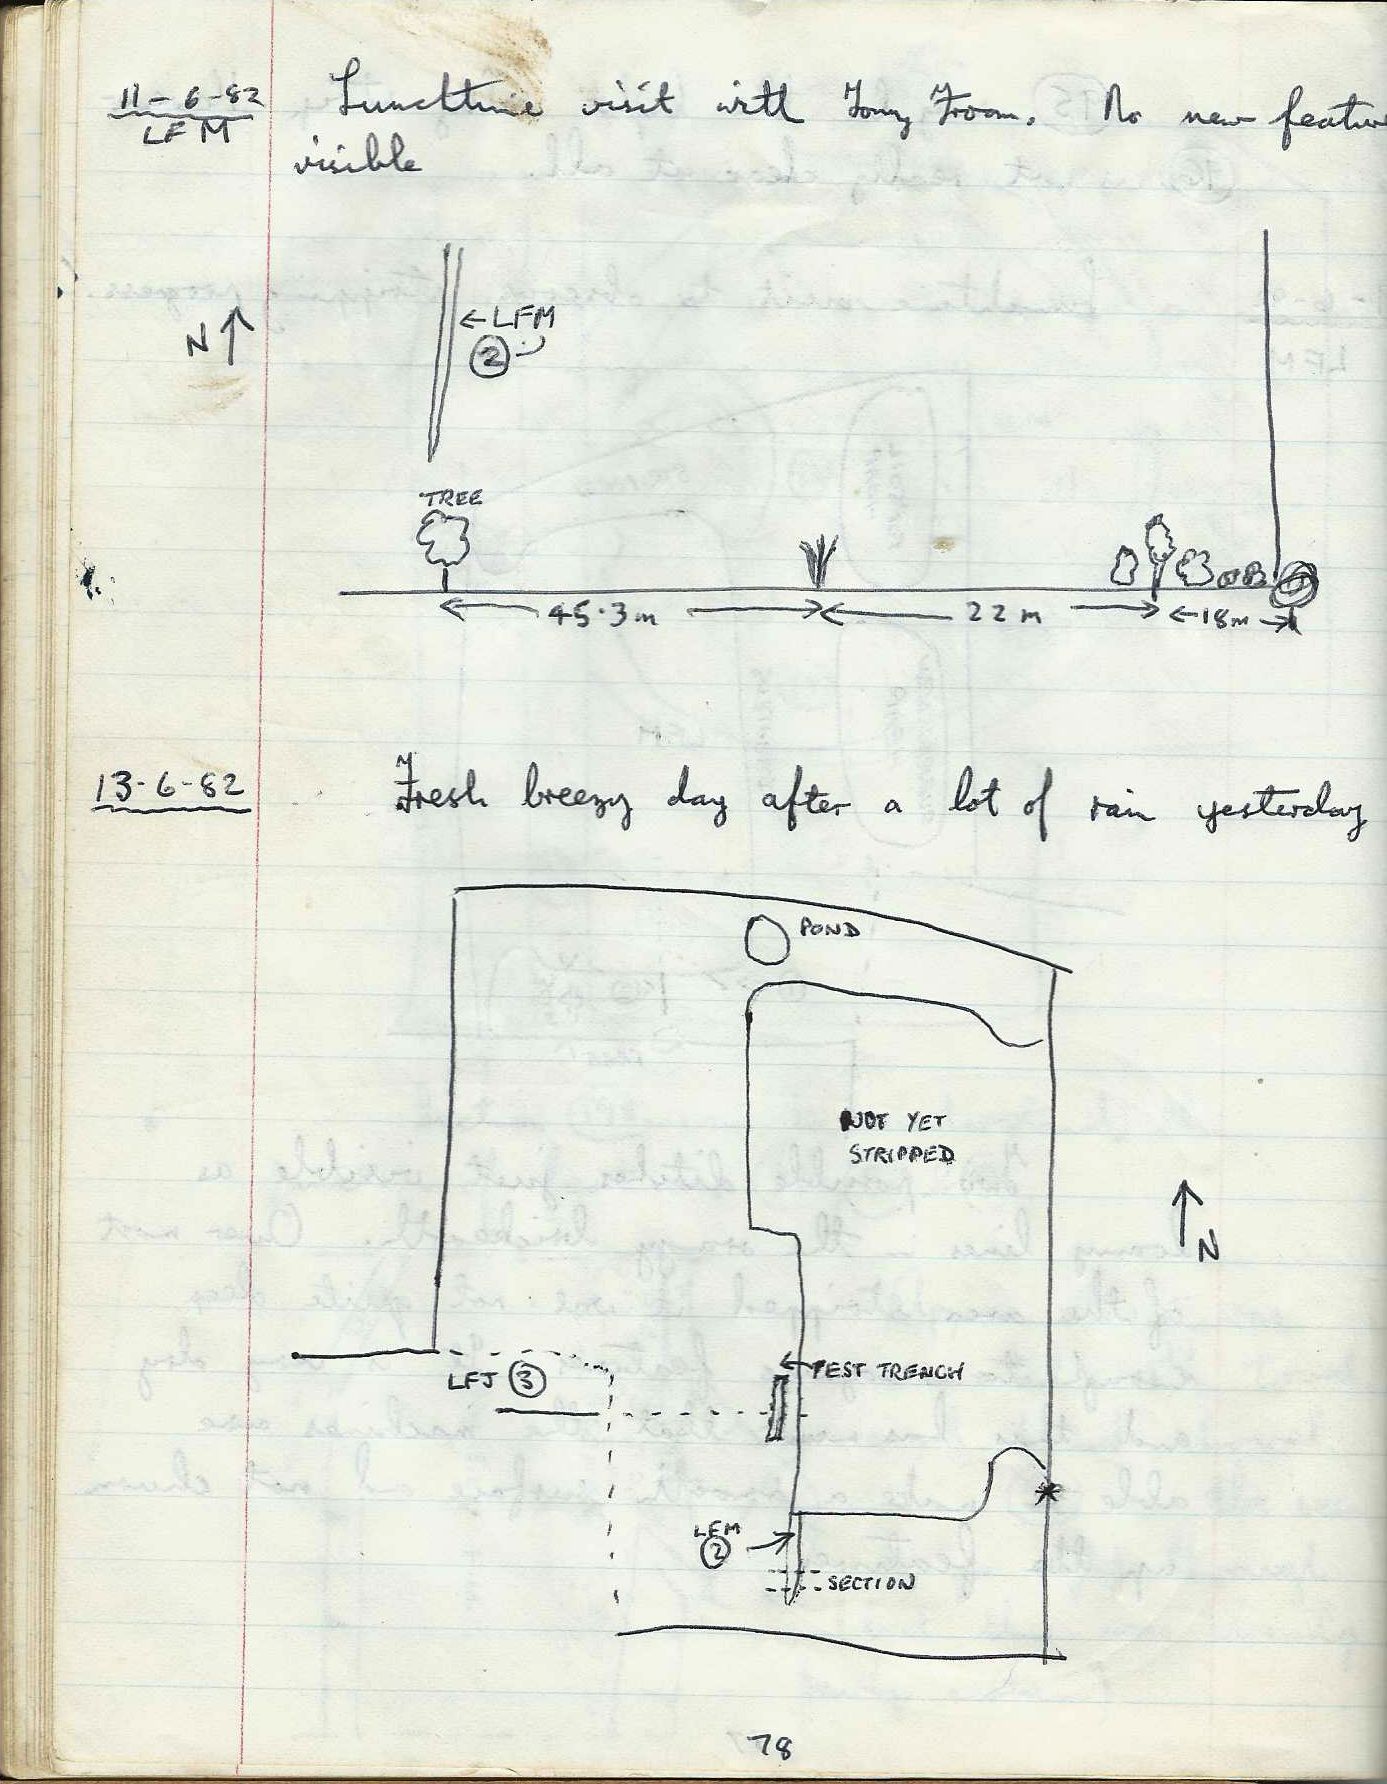 11-6-82 Lunchtime visit with Tony Froom. No new feature
LFM
visible
N
←LFM
②
TREE
45.3m 22m 18m
13-6-82 Fresh breezy day after a lot of rain yesterday
POND
NOT YET
STRIPPED
N
TEST TRENCH
LFJ ③
LFM
②
SECTION
78